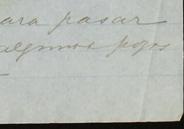 ara pasar
algunos pojos